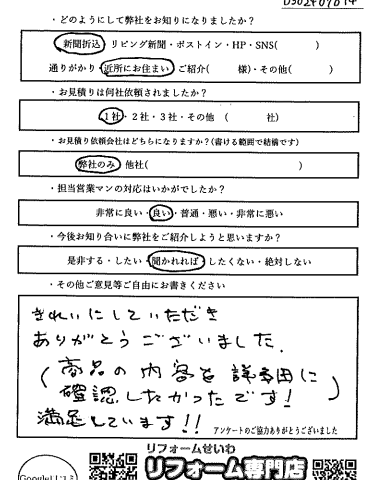 ・どのようにして弊社をお知りになりましたか？
新聞折込・リビング新聞・ポストイン・HP・SNS(　　　)
通りがかり・近所にお住まい・ご紹介(　　様)・その他(　　　)
・お見積りは何社依頼されましたか？
1社・2社・3社・その他　(　　　社)
・お見積り依頼会社はどちらになりますか？(書ける範囲で結構です)
弊社のみ・他社(　　　)
・担当営業マンの対応はいかがでしたか？
非常に良い・良い・普通・悪い・非常に悪い
・今後お知り合いに弊社をご紹介しようと思いますか？
是非する・したい・聞かれれば・したくない・絶対しない
・その他ご意見等ご自由にお書きください
きれいにしていただき
ありがとうございました.
(商品の内容を詳細に
確認したかったです!)
満足しています!!
アンケートのご協力ありがとうございました
リフォームせいわ
リフォーム専門店